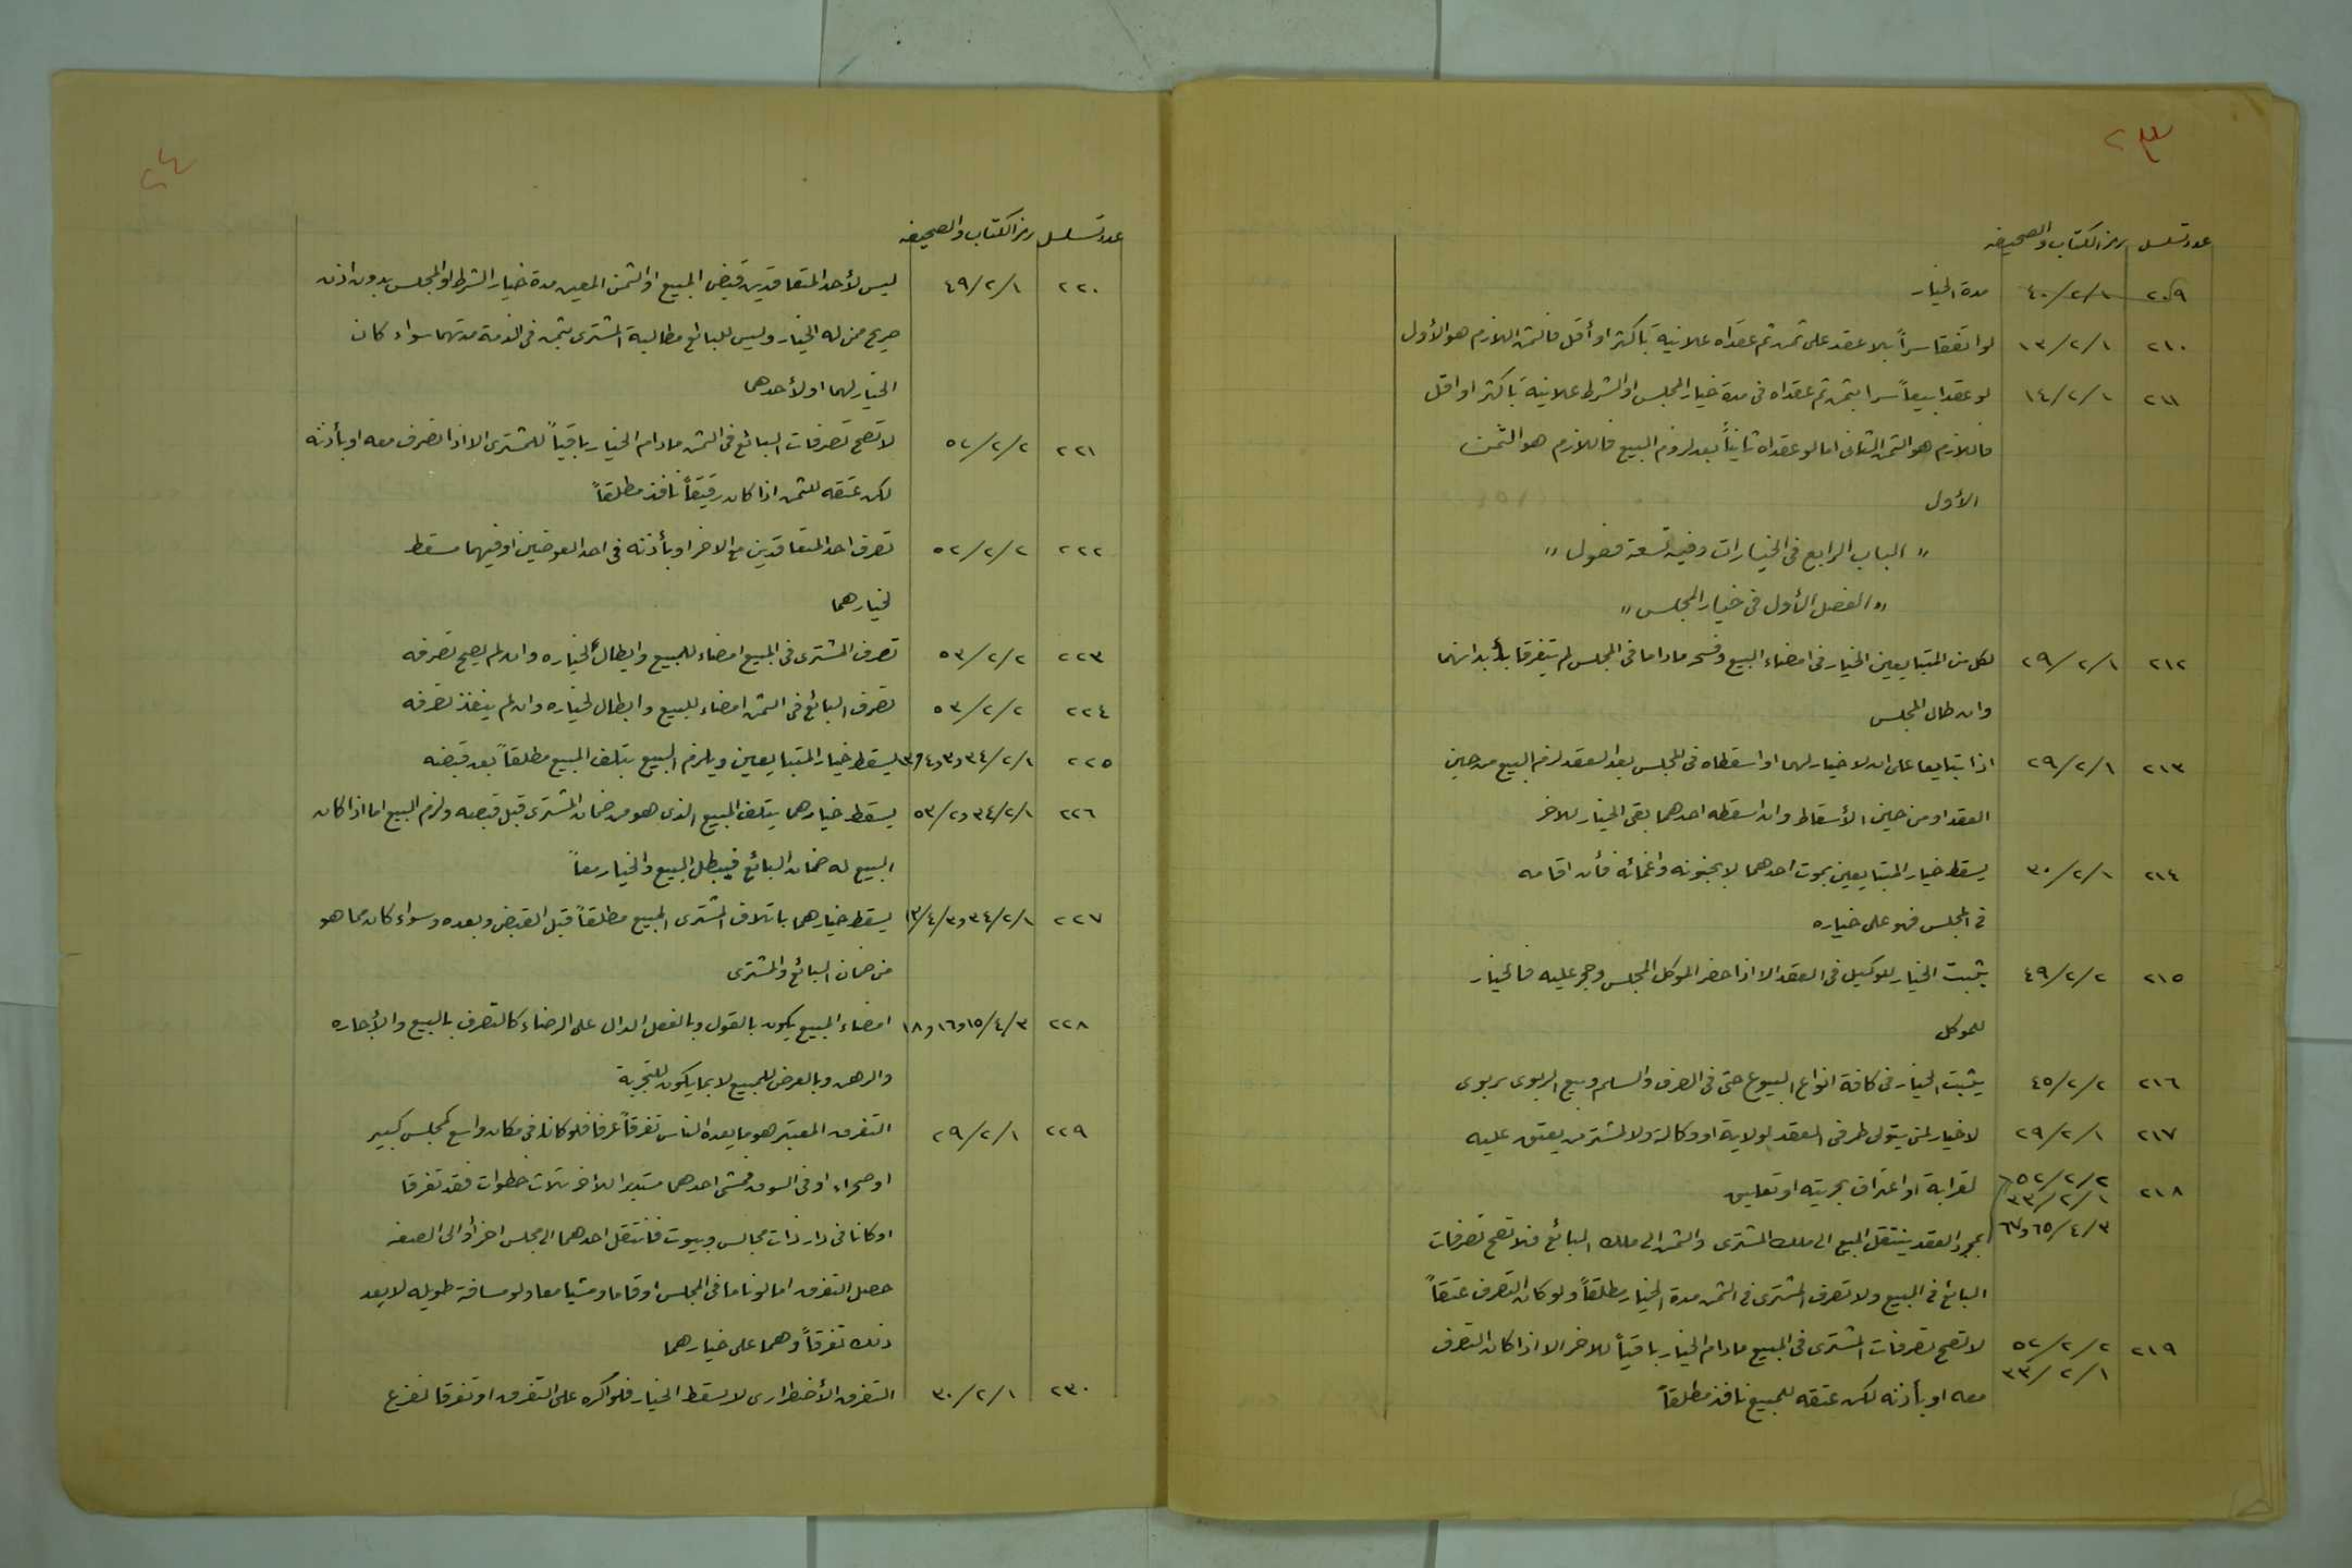 ٢٣
عدد تسلسل رمز الكتاب والصحيفه
٢٠٩ ٤٠/٢/١ مدة الخيار
٢١٠ ١٣/٢/١ لو اتفقا سراً بلا عقد على ثمن ثم عقداه علانية باكثر او أقل فالثمن اللازم هو الأول
٢١١ ١٤/٢/١ لو عقدا بيعاً سرا بثمن ثم عقداه فى مدة خيار المجلس او الشرط علانية باكثر او اقل
فاللازم هو الثمن الثانى اما لو عقداه ثانياً بعد لزوم البيع فاللازم هو الثمن
الأول
" الباب الرابع فى الخيارات وفيه تسعة فصول "
" الفصل الأول فى خيار المجلس "
٢١٢ ٢٩/٢/١ لكل من المتبايعين الخيار فى امضاء البيع وفسخه ماداما فى المجلس لم يتفرقا بأبدانهما
وان طال المجلس
٢١٣ ٢٩/٢/١ اذا تبايعا على ان لا خيار لهما او اسقطاه فى المجلس بعد العقد لزم البيع من حين
العقد او من حين الأسقاط وان اسقطه احدهما بقى الخيار للاخر
٢١٤ ٣٠/٢/١ يسقط خيار المتبايعين بموت احدهما لا بجنونه واغمائه فأن اقامه
فى المجلس فهو على خياره
٢١٥ ٤٩/٢/٢ يثبت الخيار للوكيل فى العقد الا اذا حضر الموكل المجلس وحجر عليه فالخيار
للموكل
٢١٦ ٤٥/٢/٢ يثبت الخيار فى كافة انواع البيوع حتى فى الصرف والسلم وبيع الربوى بربوى
٢١٧ ٢٩/٢/١ لا خيار لمن يتولى طرفى العقد لولاية او وكالة ولا لمشتر من يعتق عليه
٢١٨ ٥٢/٢/٢ ٣٣/٢/١ لقرابة او اعتراف بحريته او تعليق
٦٥/٤/٣ و٦٧ بمجرد العقد ينتقل المبيع الى ملك المشترى والثمن الى ملك البائع فلا تصح تصرفات
البائع فى المبيع ولا تصرف المشترى فى الثمن مدة الخيار مطلقاً ولو كان التصرف عتقاً
٢١٩ ٥٢/٢/٢ لا تصح تصرفات المشترى فى المبيع مادام الخيار باقياً للاخر الا اذا كان التصرف
٣٣/٢/١ معه او بأذنه لكن عتقه للمبيع نافذ مطلقاً
٢٤
عدد تسلسل رمز الكتاب والصحيفه
٢٢٠ ٤٩/٢/١ ليس لأحد المتعاقدين قبض المبيع او الثمن المعين مدة خيار الشرط او المجلس بدون اذن
صريح ممن له الخيار وليس للبائع مطالبة المشترى بثمن فى الذمة مدتهما سواء كان
الخيار لهما او لأحدهما
٢٢١ ٥٢/٢/٢ لا تصح تصرفات البائع فى الثمن مادام الخيار باقياً للمشترى الا اذا تصرف معه او بأذنه
لكن عتقه للثمن اذا كان رقيقاً نافذ مطلقاً
٢٢٢ ٥٢/٢/٢ تصرف احد المتعاقدين مع الاخر او بأذنه فى احد العوضين او فيهما مسقط
لخيارهما
٢٢٣ ٥٣/٢/٢ تصرف المشترى فى المبيع امضاء للبيع وابطال لخياره وان لم يصح تصرفه
٢٢٤ ٥٣/٢/٢ تصرف البائع فى الثمن امضاء للبيع وابطال لخياره وان لم ينفذ تصرفه
٢٢٥ ٣٤/٢/١ و٣/٤/١٣ يسقط خيار المتبايعين ويلزم البيع بتلف المبيع مطلقاً بعد قبضه
٢٢٦ ٣٤/٢/١ و٥٣/٢ يسقط خيارهما بتلف المبيع الذى هو من ضمان المشترى قبل قبضه ولزم البيع اما اذا كان
المبيع له ضمان البائع فيبطل البيع والخيار معاً
٢٢٧ ٣٤/٢/١ و١٣/٤/٣ يسقط خيارهما باتلاف المشترى المبيع مطلقاً قبل القبض وبعده وسواء كان مما هو
من ضمان البائع والمشترى
٢٢٨ ١٥/٤/٣ و١٦ و١٨ امضاء المبيع يكون بالقول وبالفعل الدال على الرضاء كالتصرف بالبيع والأجاره
والرهن وبالعرض للمبيع لا بما يكون للتجربة
٢٢٩ ٢٩/٢/١ التفرق المعتبر هو ما يعده الناس تفرقاً عرفا فلو كانا فى مكان واسع كمجلس كبير
او صحراء او فى السوق فمشى احدهما مستدبر اللاخر ثلاث خطوات فقد تفرقا
او كانا فى دار ذات مجالس وبيوت فانتقل احدهما الى مجلس اخر او الى الصفه
حصل التفرق اما لو ناما فى المجلس او قاما ومشيا معا ولو مسافة طويله لا يعد
ذلك تفرقاً وهما على خيارهما
٢٣٠ ٣٠/٢/١ التفرق الأضطرارى لا يسقط الخيار فلو اكره على التفرق او تفرقا لفزع